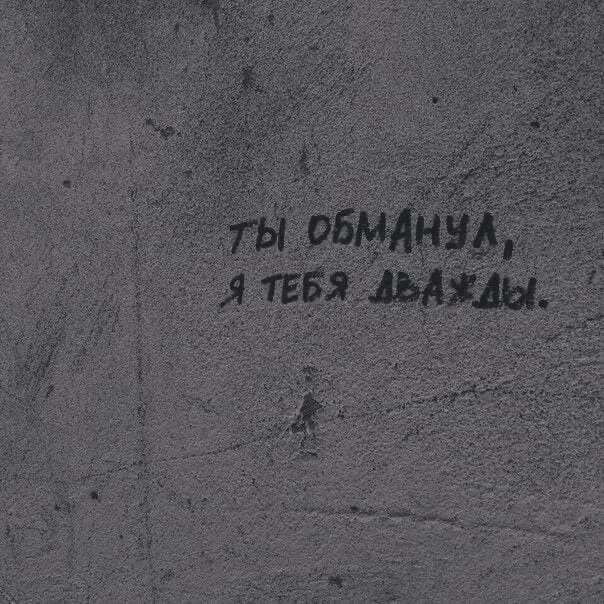 ТЫ ОБМАНУЛ,
Я ТЕБЯ ДВАЖДЫ.